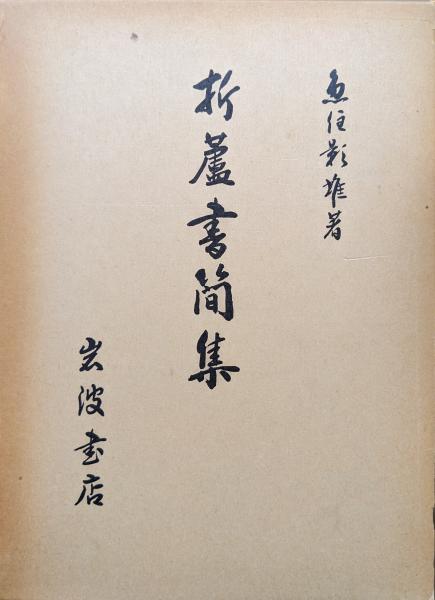 魚住影雄著
折蘆書簡集
岩波書店